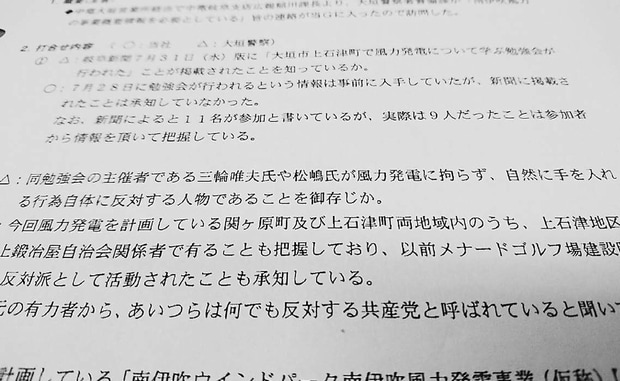 ◆中電大垣営業所経由で中電岐阜支店広報総田課長より、大垣警察署警備課が「南伊吹風力
の事業概要情報を必要としている」旨の連絡が当Gに入ったので訪問した。
2. 打合せ内容 (○：当社 △：大垣警察)
① △：岐阜新聞7月31日（水）版に「大垣市上石津町で風力発電について学ぶ勉強会が
行われた」ことが掲載されたことを知っているか。
○：7月28日に勉強会が行われるという情報は事前に入手していたが、新聞に掲載さ
れたことは承知していなかった。
なお、新聞によると11名が参加と書いているが、実際は9人だったことは参加者
から情報を頂いて把握している。
△：同勉強会の主催者である三輪唯夫氏や松嶋氏が風力発電に拘らず、自然に手を入れ
る行為自体に反対する人物であることを御存じか。
：今回風力発電を計画している関ヶ原町及び上石津町両地域内のうち、上石津地区
上鍛冶屋自治会関係者で有ることも把握しており、以前メナードゴルフ場建設時
反対派として活動されたことも承知している。
元の有力者から、あいつらは何でも反対する共産党と呼ばれていると聞いて
計画している「南伊吹ウインドパーク南伊吹風力発電事業（仮称）